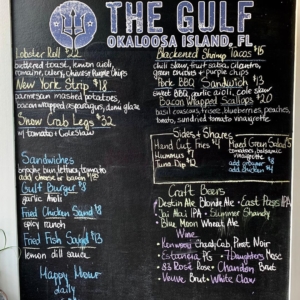 THE GULF
OKALOOSA ISLAND, FL
Lobster Roll $22
buttered toast, lemon aioli,
romaine, celery, chives + Purple Chips
New York Strip $18
parmesan mashed potatoes,
bacon wrapped asparagus, demi glaze
Snow Crab Legs $32
w/ tomato + coleslaw
Sandwiches
brioche bun, lettuce, tomato
add cheese or bacon
Gulf Burger $8
garlic aioli
Fried Chicken Sand $8
spicy ranch
Fried Fish Sand $13
lemon dill sauce
Happy Hour
daily
Blackened Shrimp Tacos $15
chili slaw, fruit salsa, cilantro,
green onions + purple chips
Pork BBQ Sandwich $13
sweet BBQ, garlic aioli, cole slaw
Bacon Wrapped Scallops $20
basil couscous, frisee, blueberries, pistachio,
tomato, sundried tomato vinaigrette
Sides + Shares
Hand Cut Fries $4
Hummus
Tuna Dip
Mixed Green Salad $
tomatoes, balsamic
vinaigrette
add grouper $8
add chicken $4
Craft Beers
Destin Ale Blonde Ale • East Pass IPA
Jai Alai IPA • Summer Shandy
• Blue Moon Wheat Ale
Wine
• Kenwood Pinot Noir
• Estancia, PG • 7 Daughters Rose
• 83 Rosé Rose • Chandon Brut
• Veuve Brut • White Claw